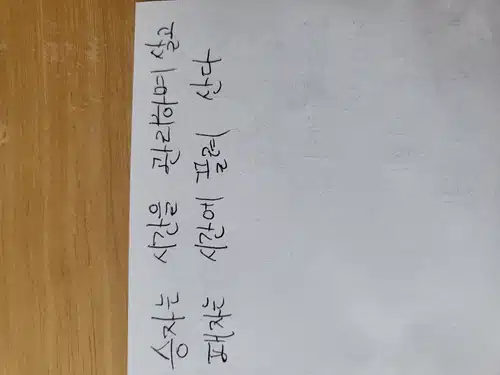 승자는 시간을 관리하며 살고
패자는 시간에 끌려 산다